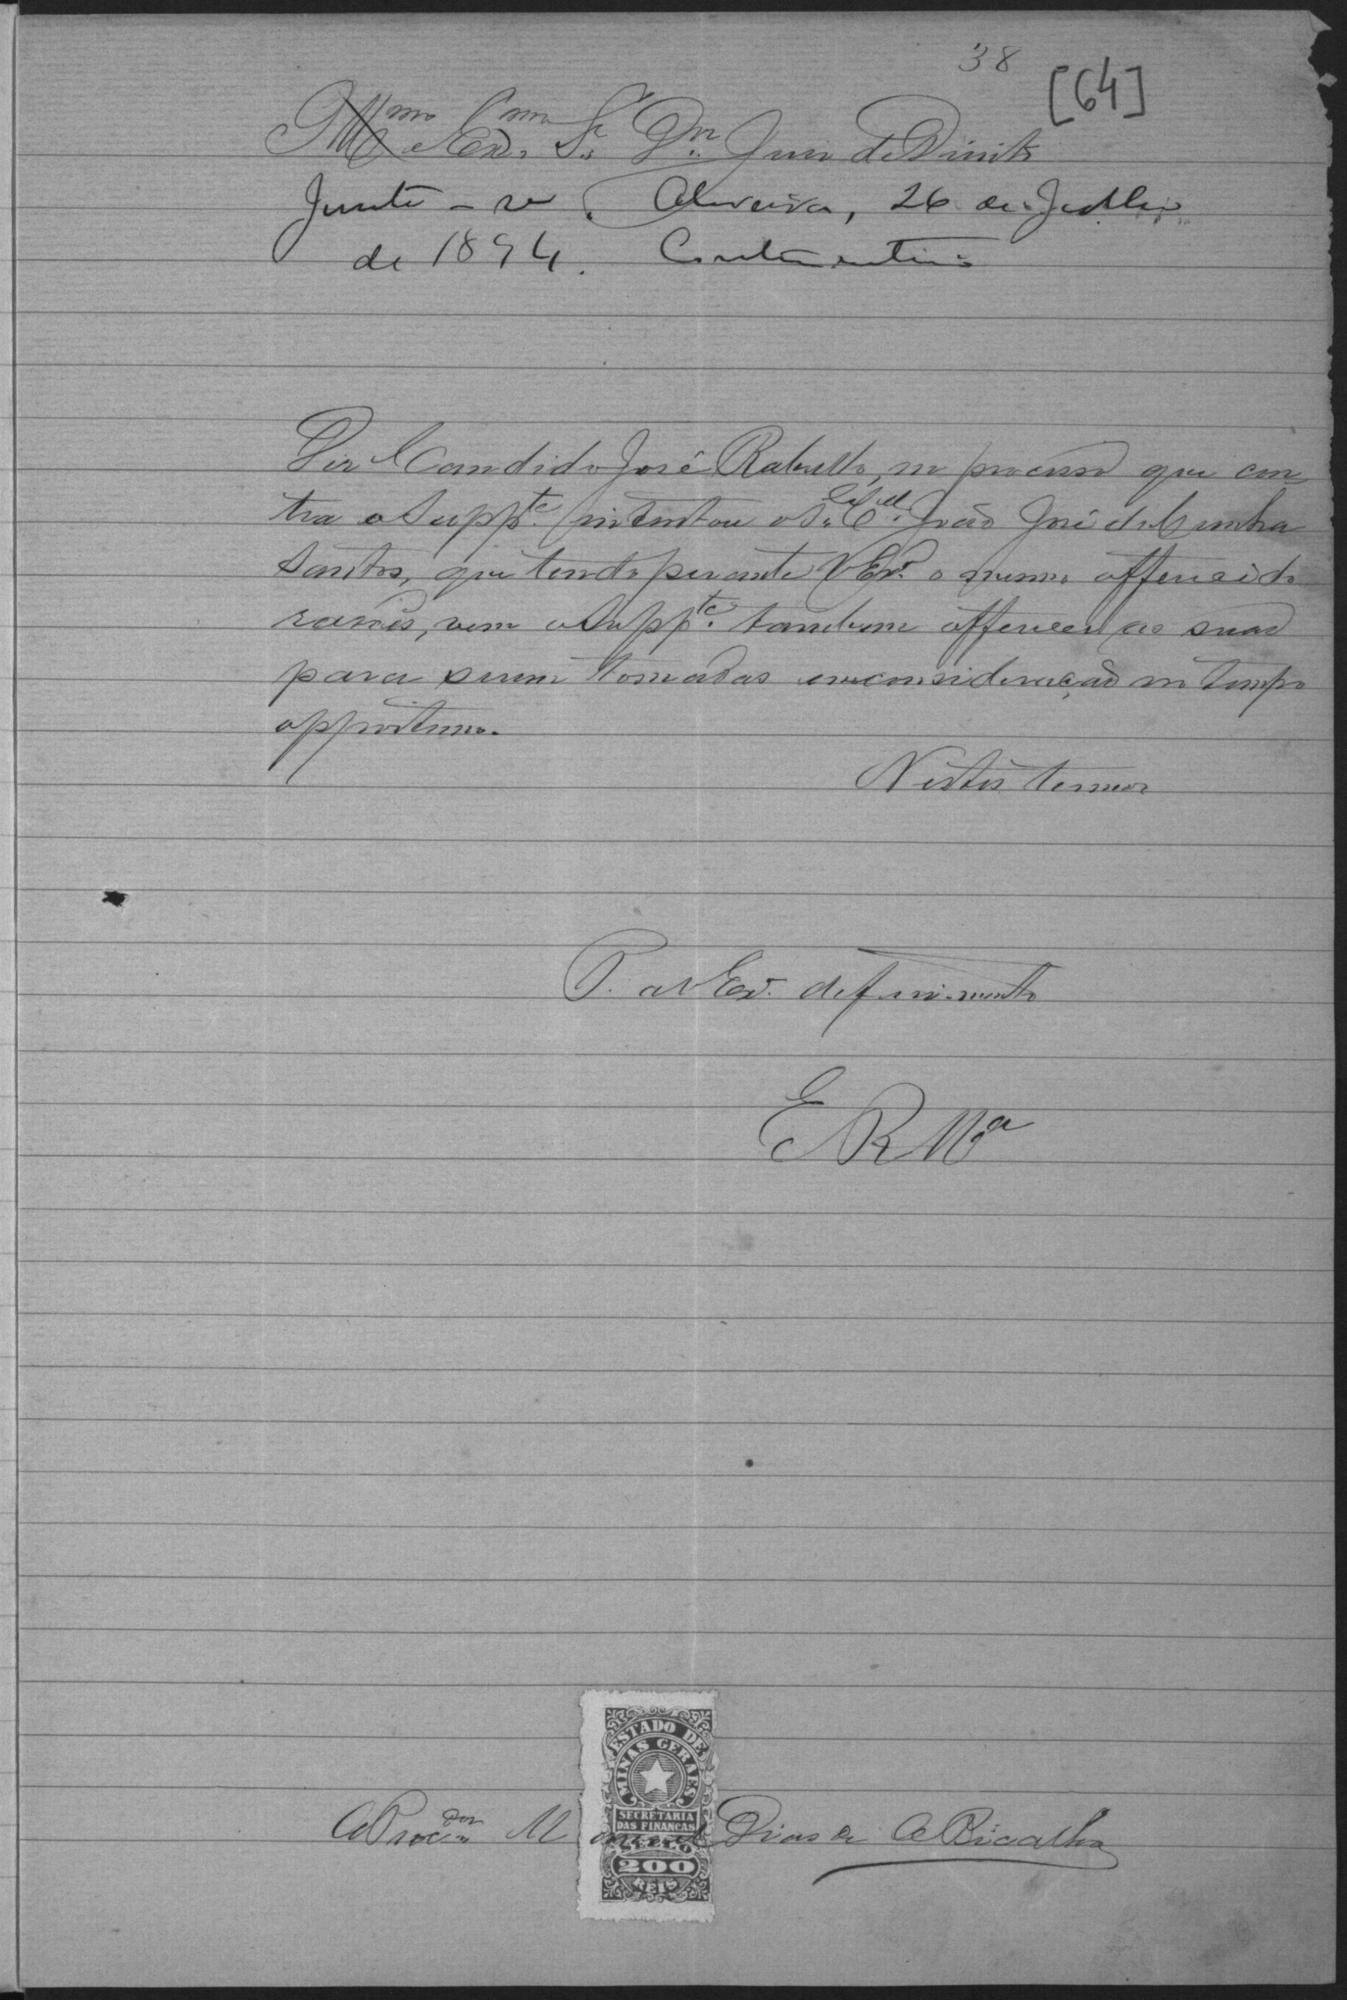 38
[64]
Illmo Exmo Sr. Dr. Juiz de Direito
Junte-se. Oliveira, 26 de Julho
de 1894.
Diz Candido José Rabello, no processo que con
tra o Suppte. intentou o Sr. Cel. João José da Cunha
Santos, que tendo perante V Exa. o mesmo offerecido
razões, vem o Suppte. tambem offerecer as suas
para serem tomadas em consideração no tempo
opportuno.
Nestes termos
P. a V Exa. deferimento
E R Mca
ESTADO DE
MINAS GERAES
SECRETARIA
DAS FINANÇAS
SELLO
200
REIS
O Procdor. Manoel Dias de O Bicalho